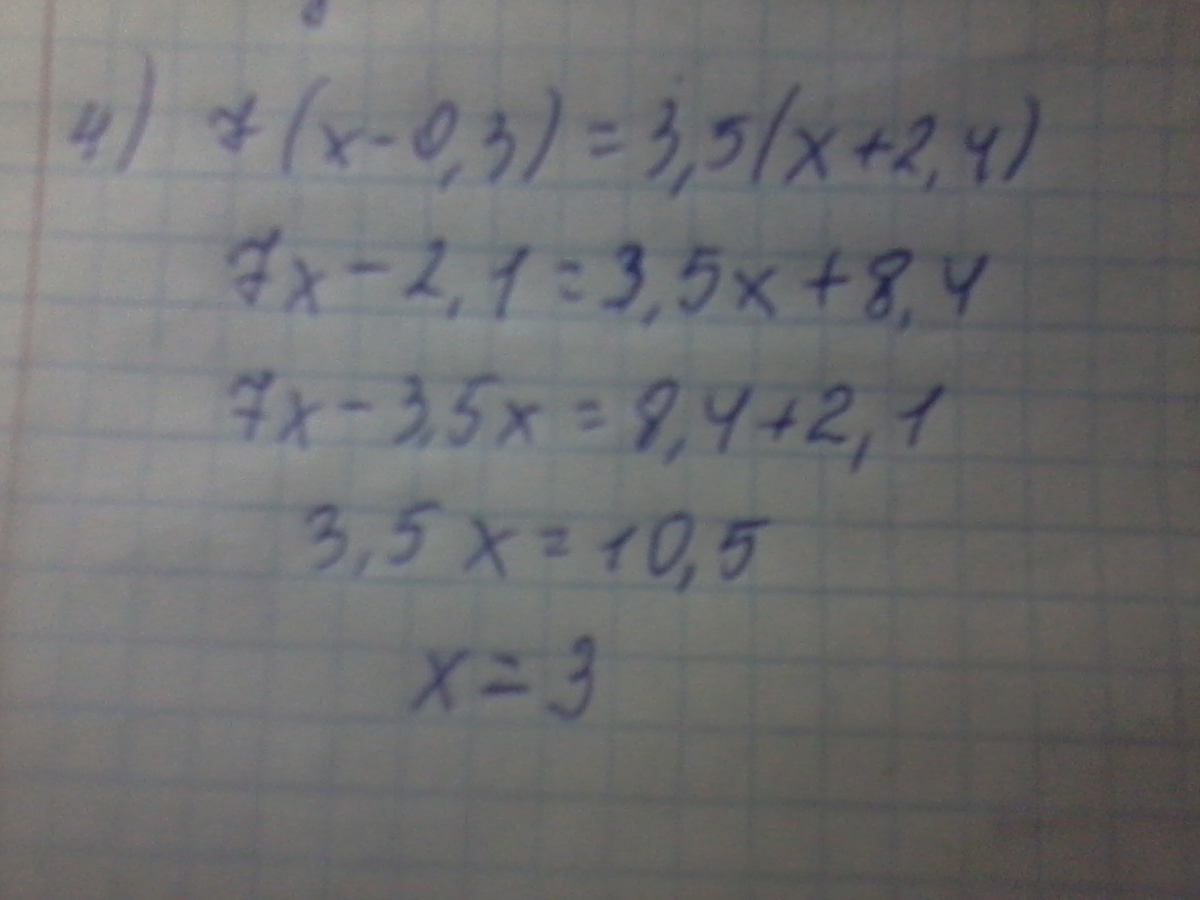 4) 7(x-0,3)=3,5(x+2,4)
7x-2,1=3,5x+8,4
7x-3,5x=8,4+2,1
3,5x=10,5
x=3